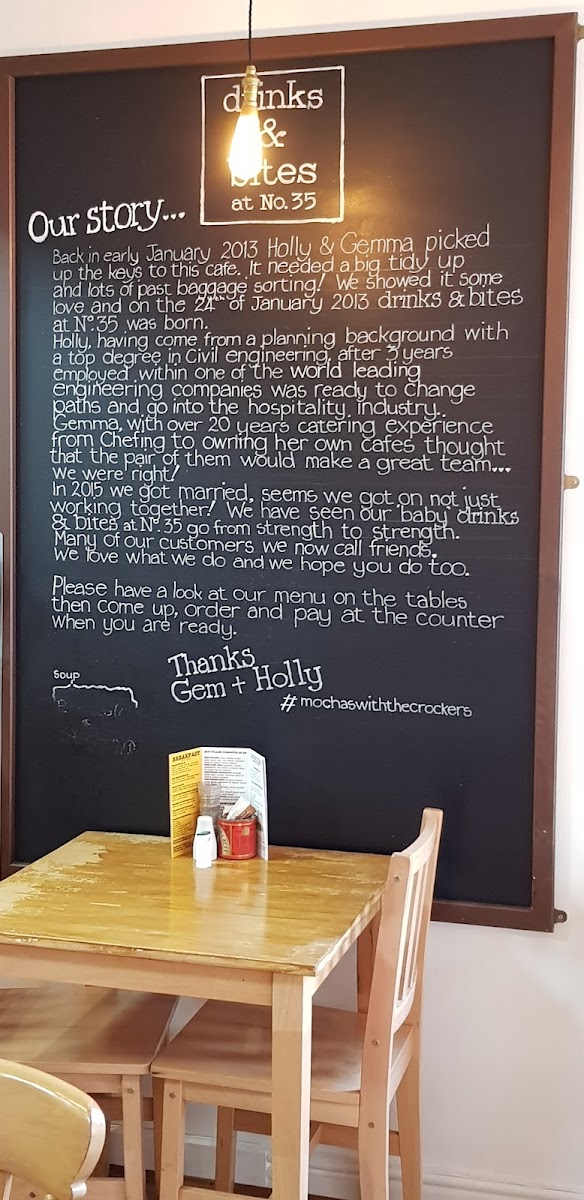 drinks
&
bites
at No. 35
Our story...
Back in early January 2013 Holly & Gemma picked
up the keys to this cafe. It needed a big tidy up
and lots of past baggage sorting! We showed it some
love and on the 24th of January 2013 drinks & bites
at No. 35 was born.
Holly, having come from a planning background with
a top degree in Civil engineering, after 3 years
employed within one of the world leading
engineering companies was ready to change
paths and go into the hospitality industry.
Gemma, with over 20 years catering experience
from Chefing to owning her own cafes thought
that the pair of them would make a great team...
We were right!
In 2015 we got married, seems we got on not just
working together! We have seen our baby drinks
& bites at No. 35 go from strength to strength.
Many of our customers we now call friends.
We love what we do and we hope you do too.
Please have a look at our menu on the tables
then come up, order and pay at the counter
when you are ready.
Soup
Thanks
Gem + Holly
#mochaswiththecrockers
BREAKFAST